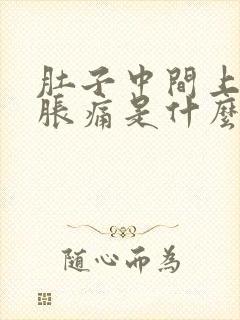 肚子中間上
脹痛是什麼
隨心而為